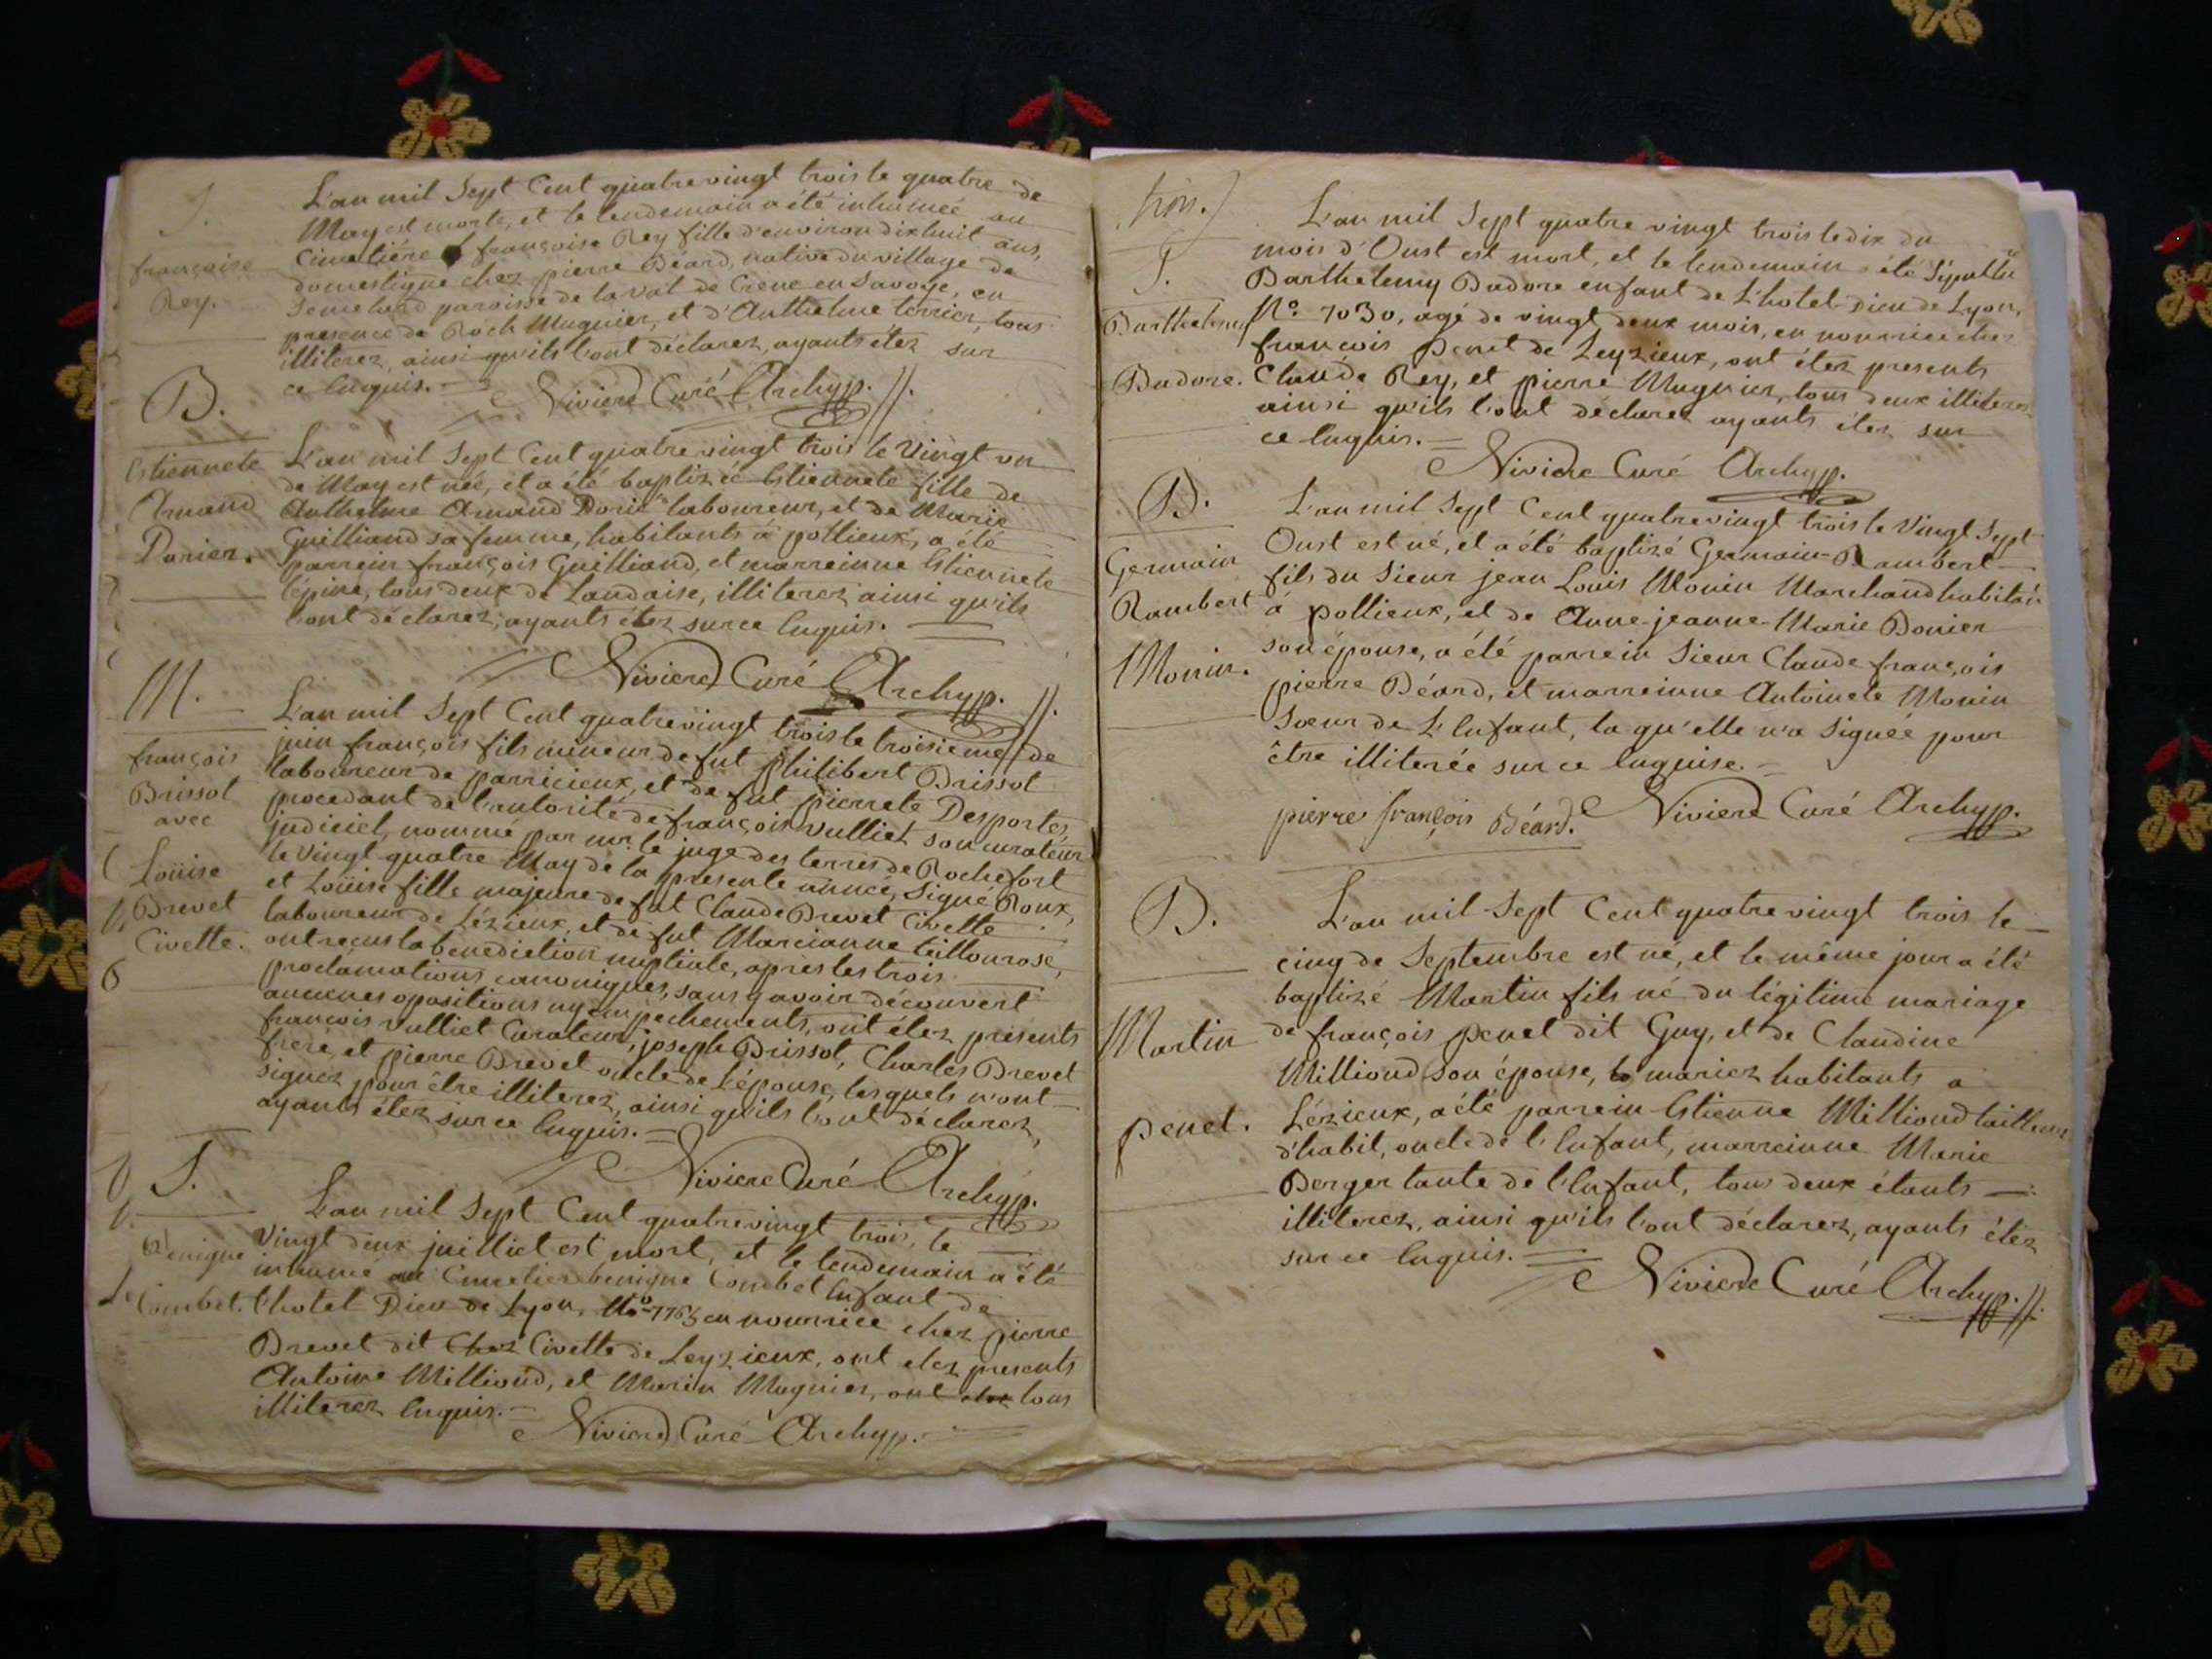 S.
françoise
Rey.
L'an mil Sept Cent quatre vingt trois le quatre de
May est morte, et le lendemain a été inhumée au
Cimetiére françoise Rey fille d'environ dixhuit ans,
domestique chez pierre Déard, native du village de
paroisse de la val de Crene en Savoye, en
presence de Roch Mugnier, et d'Anthelme terrier, tous
illiterez, ainsi qu'ils l'ont déclarez, ayants étez sur
ce Enquis.
Curé Archyp.
B.
Estiennete
Amand
Donier.
L'an mil Sept Cent quatre vingt trois le Vingt un
de May est née, et a été baptizéé Estiennete fille de
Anthelme Amand Donié laboureur, et de Marie
Guilliand sa femme, habitants à pollieux, a été
parrein françois Guilliand, et marreinne Estiennete
l'épine, tous deux de Landaise, illiterez ainsi qu'ils
l'ont déclarez, ayants étez sur ce Enquis.
Curé Archyp.
M.
françois
Brissot
avec
Loüise
Brevet
Civette.
L'an mil Sept Cent quatre vingt trois le troisieme de
juin françois fils mineur de fut philibert Brissot
laboureur de parricieux, et de fut pierrete Desportes,
procedant de l'autorité de françois vulliet son curateur
judiciel, nommé par mr. le juge des terres de Rochefort
le Vingt-quatre May de la presente année, Signé Roux,
et Loüise fille majeure de fut Claude Brevet Civette
laboureur de Lézieux, et de fut Marcianne taillourose,
ont reçus la benediction nuptiale, apres les trois
proclamations canoniques, sans y avoir découvert
aucunes opositions ny empechements, ont étez presents
françois vulliet Curateur, joseph Brissot, Charles Brevet
frere, et pierre Brevet oncle de l'épouse, lesquels n'ont
signez pour être illiterez, ainsi qu'ils l'ont déclarez,
ayants étez sur ce Enquis.
Curé Archyp.
S.
Benigne
Combet.
L'an mil Sept Cent quatre vingt trois, le
Vingt deux juilliet est mort, et le lendemain a été
inhumé au Cimetier benigne Combet Enfant de
l'hotel Dieu de Lyon, No 7765 en nourrice chez pierre
Brevet dit Chez Civette de Leyzieux, ont etez presents
Antoine Milliond, et Marin Mugnier, ont etez tous
illiterez Enquis.
Curé Archyp.
S.
Barthelemy
Badore.
L'an mil Sept quatre vingt trois le dix du
mois d'Oust est mort, et le lendemain été Sépulturé
Barthelemy Badore enfant de L'hotel-Dieu de Lyon,
No: 7030, agé de vingt deux mois, en nourrice chez
francois penet de Leyzieux, ont étez presents
Claude Rey, et pierre Mugnier, tous deux illiterez
ainsi qu'ils l'ont déclarez ayants étez sur
ce Enquis.
Curé Archyp.
B.
Germain
Rambert
Monin.
L'an mil Sept Cent quatre vingt trois le Vingt Sept
Oust est né, et a été baptizé Germain-Rambert
fils du Sieur jean Louis Monin Marchand habitan
à pollieux, et de Anne-jeanne-Marie Bonier
son épouse, a été parrein Sieur Claude françois
pierre Déard, et marreinne Antoinete Monin
Soeur de L'Enfant, la qu'elle n'a Signéé pour
être illiteréé sur ce Enquise.
pierre françois Béard.
Curé Archyp.
B.
Martin
penet.
L'an mil Sept Cent quatre vingt trois le
cinq de Septembre est né, et le même jour a été
baptizé Martin fils né du légitime mariage
de françois penet dit Guy, et de Claudine
Milliond son épouse, mariez habitants a
Lézieux, a été parrein Estienne Milliond tailleur
d'habit, oncle de l'Enfant, marreinne Marie
Berger tante de l'Enfant, tous deux étants
illiterez, ainsi qu'ils l'ont déclarez, ayants étez
sur ce Enquis.
Curé Archyp.